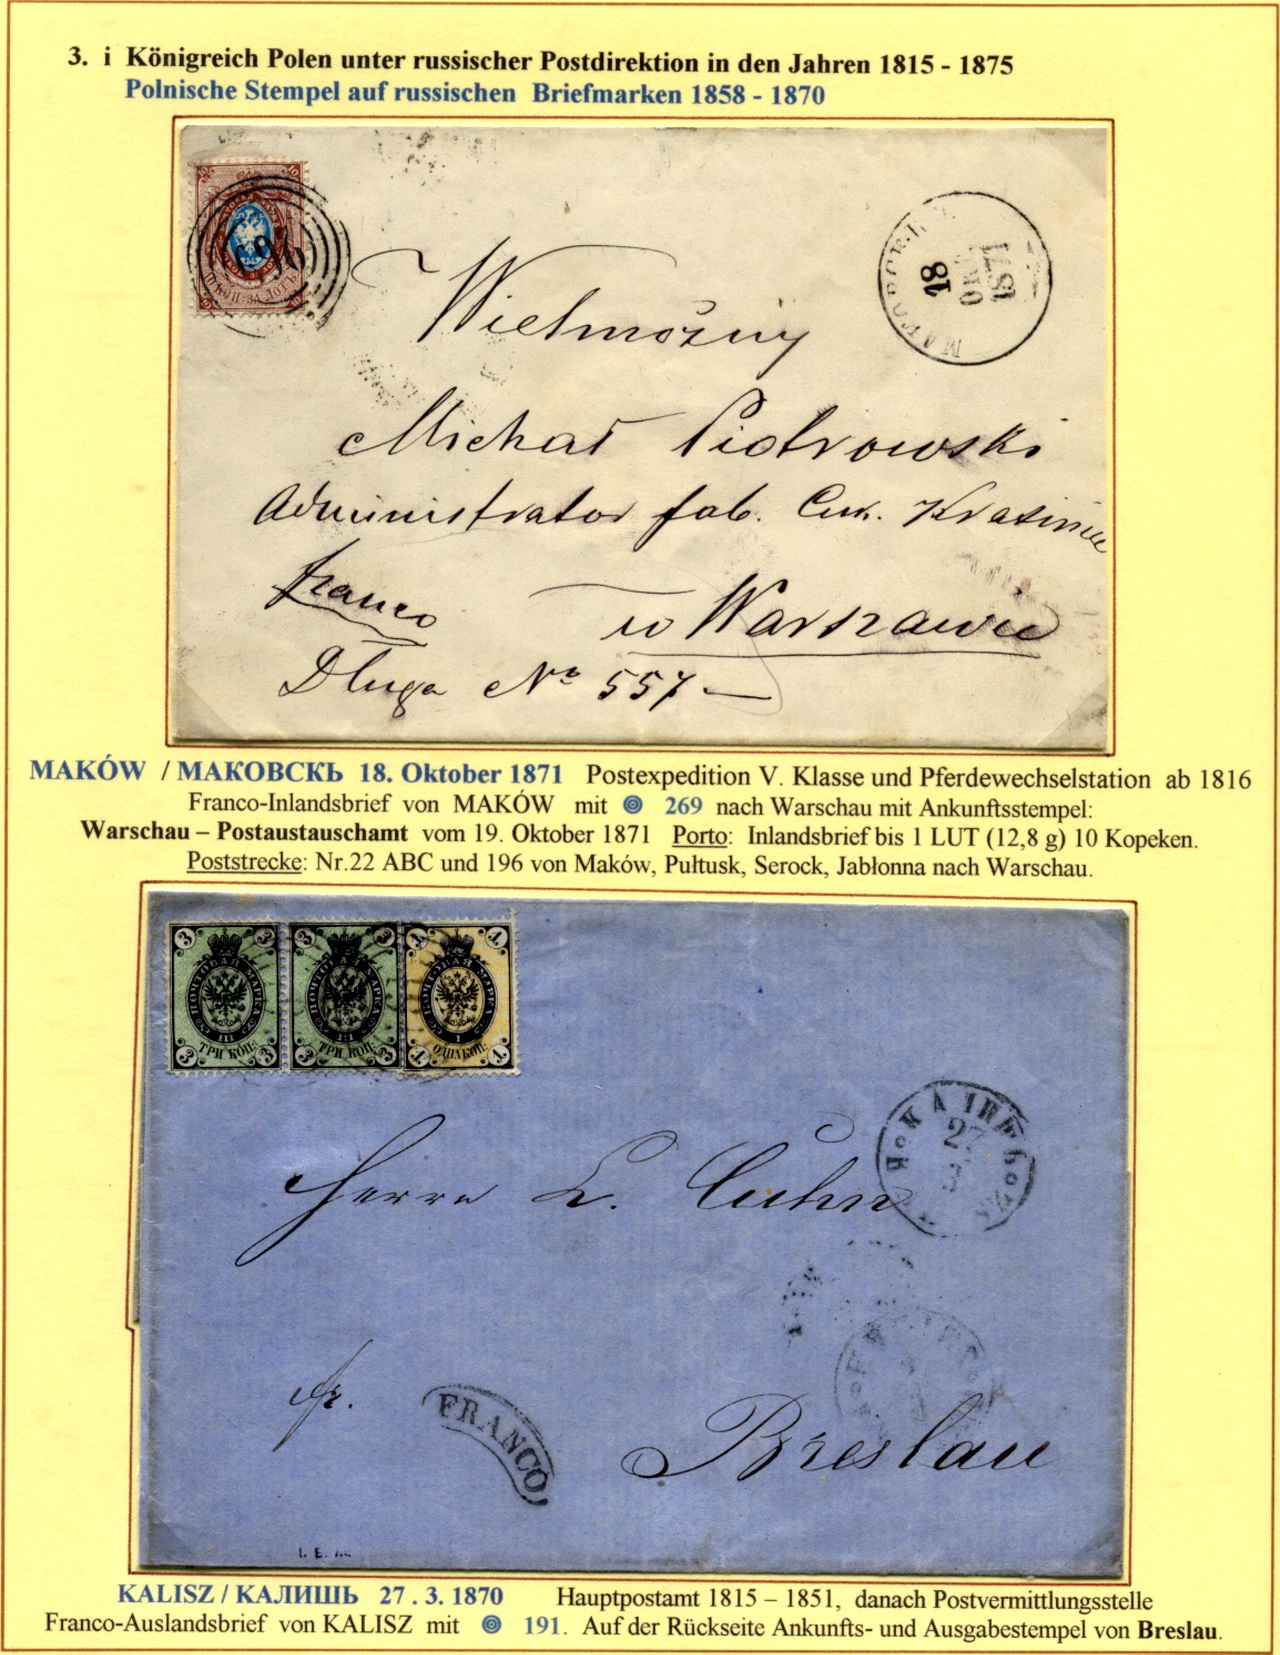 3. i Königreich Polen unter russischer Postdirektion in den Jahren 1815 - 1875
Polnische Stempel auf russischen Briefmarken 1858 - 1870
10 КОП: ЗА ЛОТЪ
18
ОКТ
1871
Wielmożny
Michał Piotrowski
Administrator fab. Cuk. Krasiniec
franco
w Warszawie
Długa No 557 —
MAKÓW / МАКОВСКЬ 18. Oktober 1871 Postexpedition V. Klasse und Pferdewechselstation ab 1816
Franco-Inlandsbrief von MAKÓW mit 269 nach Warschau mit Ankunftsstempel:
Warschau – Postaustauschamt vom 19. Oktober 1871 Porto: Inlandsbrief bis 1 LUT (12,8 g) 10 Kopeken.
Poststrecke: Nr.22 ABC und 196 von Maków, Pułtusk, Serock, Jabłonna nach Warschau.
3 3 3 3 1 1
ПОЧТОВАЯ МАРКА ПОЧТОВАЯ МАРКА ПОЧТОВАЯ МАРКА
III III I
3 ТРИ КОП: 3 3 ТРИ КОП: 3 1 ОДНА КОП: 1
27
Herrn L. Cuhn
fr.
FRANCO
Breslau
KALISZ / КАЛИШЬ 27 . 3. 1870 Hauptpostamt 1815 – 1851, danach Postvermittlungsstelle
Franco-Auslandsbrief von KALISZ mit 191. Auf der Rückseite Ankunfts- und Ausgabestempel von Breslau.